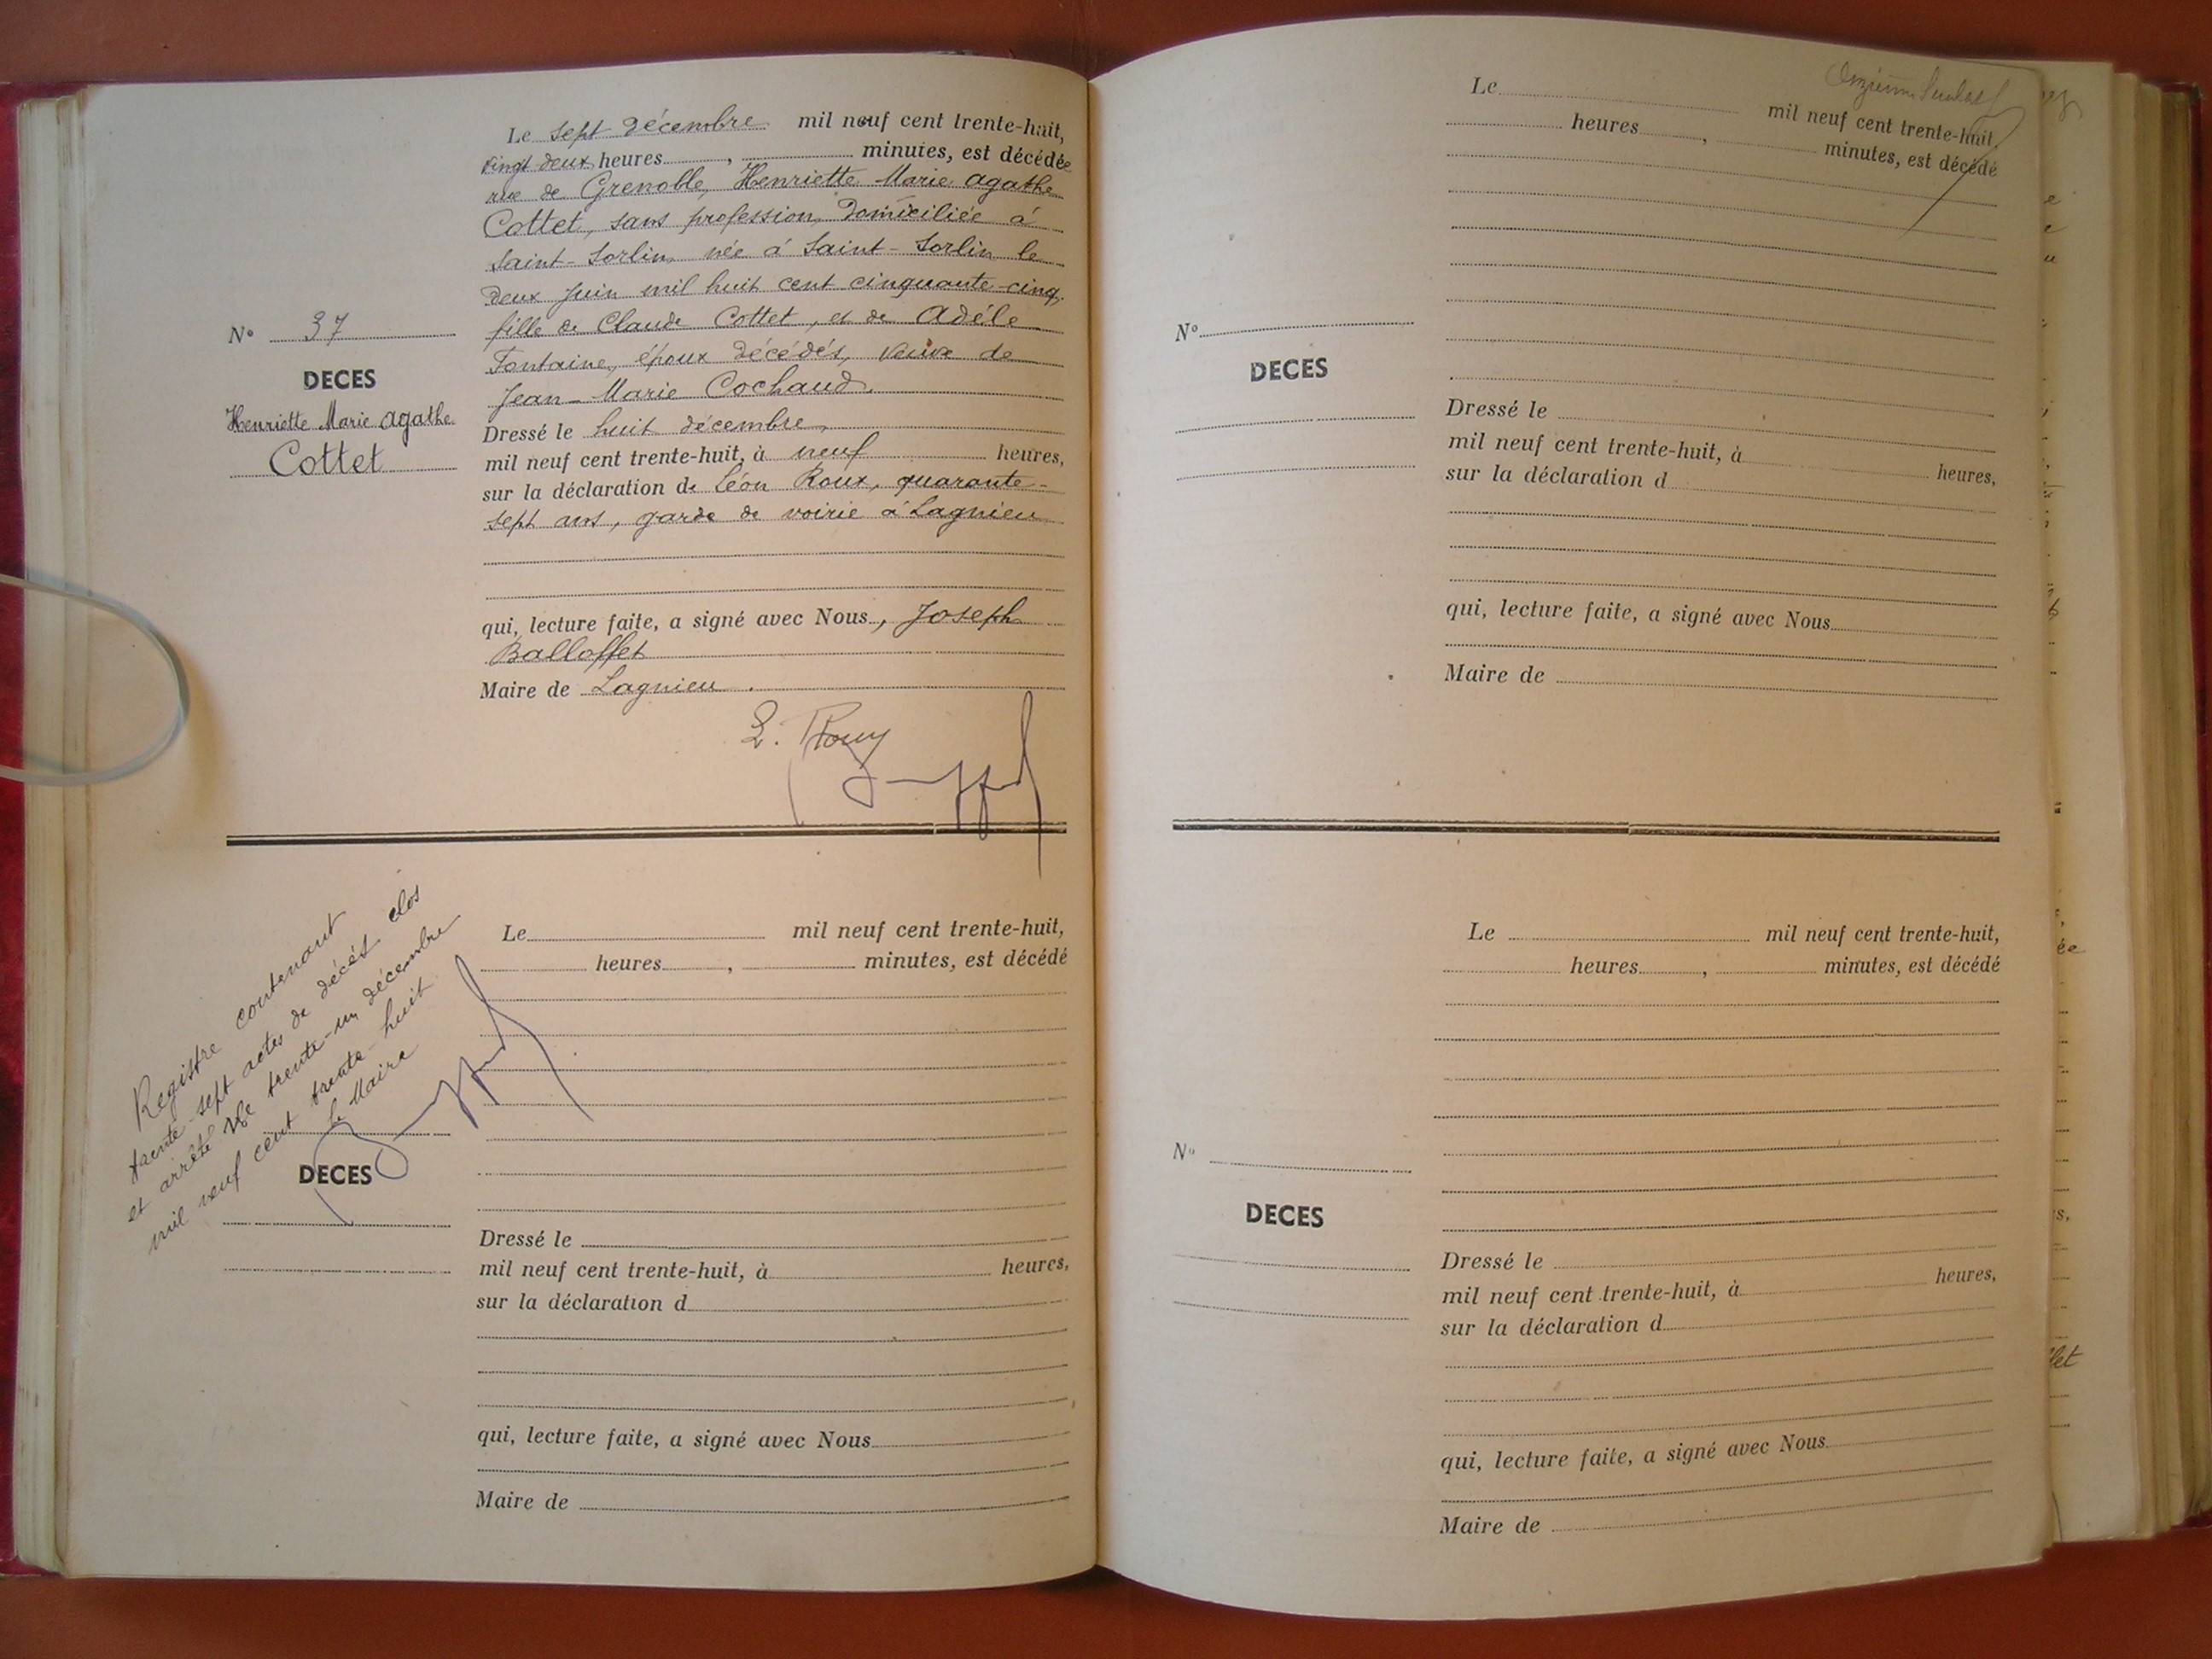 Le sept décembre mil neuf cent trente-huit,
vingt deux heures, minutes, est décédée
rue de Grenoble, Henriette Marie Agathe
Cottet, sans profession, domiciliée à
Saint-Sorlin, née à Saint-Sorlin le
deux juin mil huit cent cinquante-cinq,
fille de Claude Cottet, et de Adéle
Fontaine, époux décédés, veuve de
Jean-Marie Cochaud.
N° 37
DECES
Henriette Marie Agathe
Cottet
Dressé le huit décembre,
mil neuf cent trente-huit, à neuf heures,
sur la déclaration de Léon Roux, quarante-
sept ans, garde de voirie à Lagnieu
qui, lecture faite, a signé avec Nous, Joseph
Balloffet
Maire de Lagnieu.
L. Roux
Registre contenant
trente-sept actes de décés clos
et arrêté le trente-un décembre
mil neuf cent trente-huit
Le Maire
Le mil neuf cent trente-huit,
heures, minutes, est décédé
DECES
Dressé le
mil neuf cent trente-huit, à heures,
sur la déclaration d
qui, lecture faite, a signé avec Nous
Maire de
Le mil neuf cent trente-huit,
heures, minutes, est décédé
N°
DECES
Dressé le
mil neuf cent trente-huit, à heures,
sur la déclaration d
qui, lecture faite, a signé avec Nous
Maire de
Le mil neuf cent trente-huit,
heures, minutes, est décédé
N°
DECES
Dressé le
mil neuf cent trente-huit, à heures,
sur la déclaration d
qui, lecture faite, a signé avec Nous
Maire de